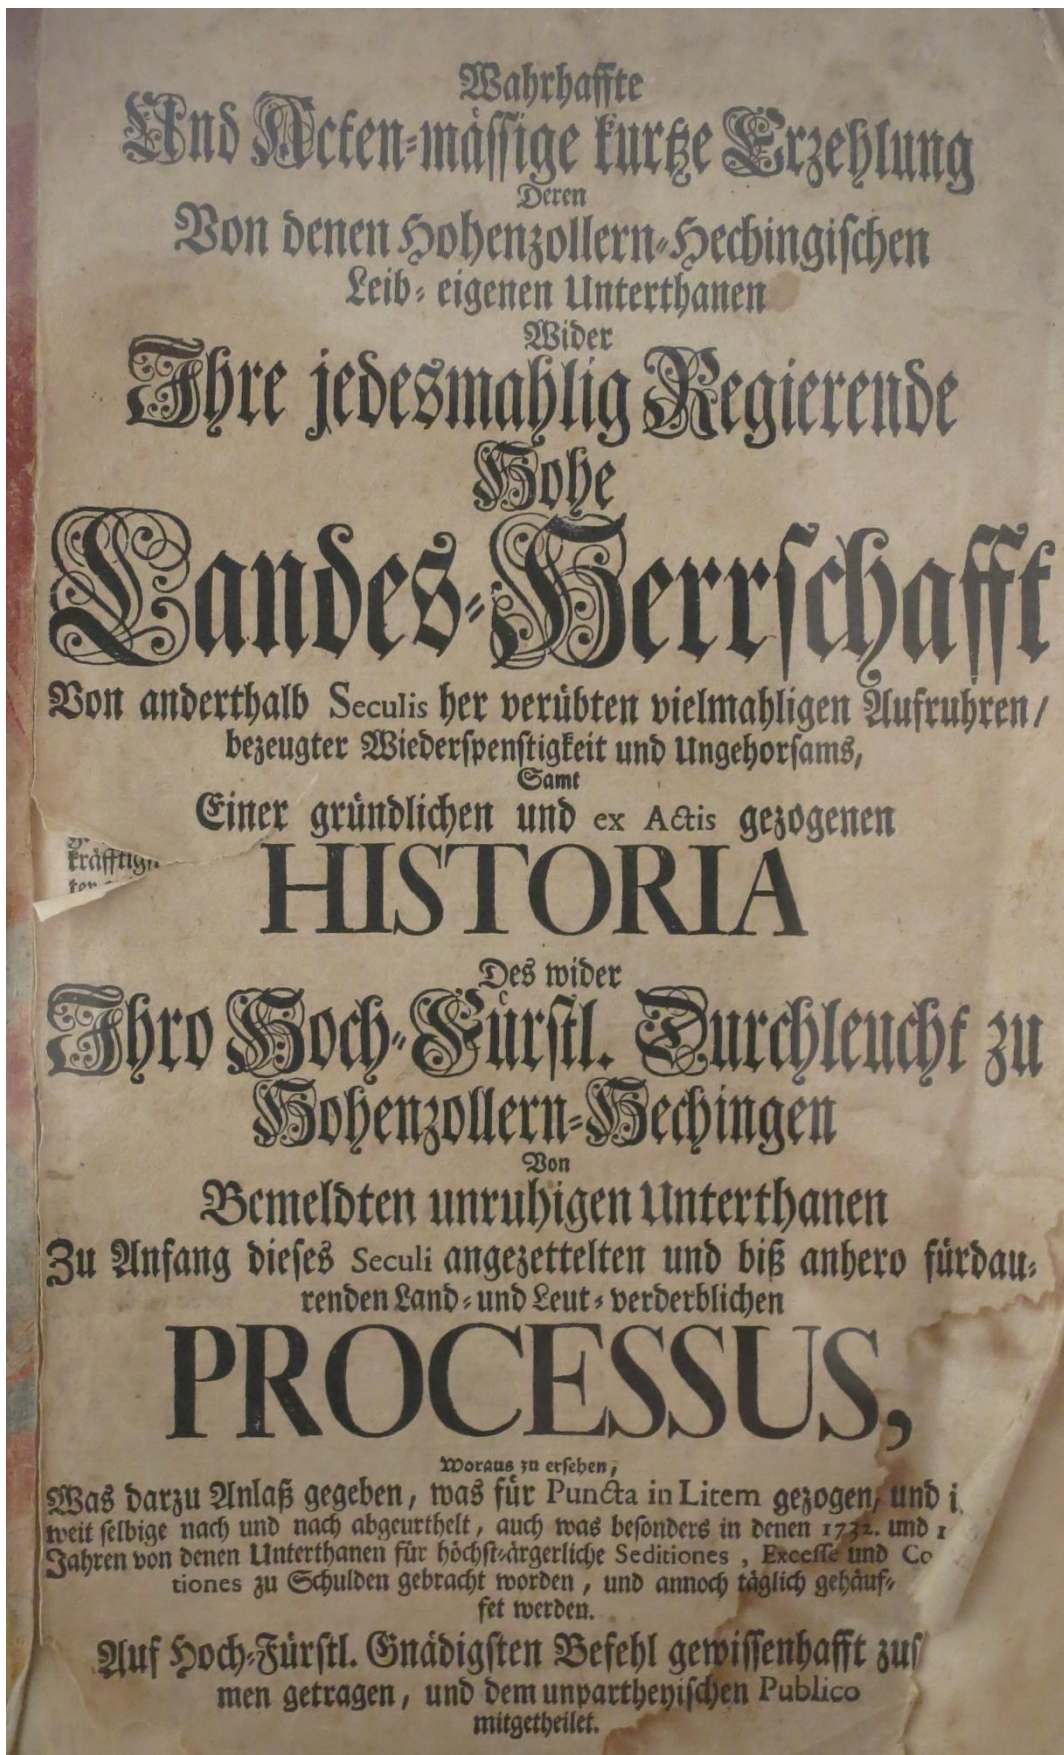 Wahrhaffte
Und Acten-mässige kurtze Erzehlung
Deren
Von denen Hohenzollern-Hechingischen
Leib-eigenen Unterthanen
Wider
Ihre jedesmahlig Regierende
Hohe
Landes-Herrschafft
Von anderthalb Seculis her verübten vielmahligen Aufruhren/
bezeugter Wiederspenstigkeit und Ungehorsams,
Samt
Einer gründlichen und ex Actis gezogenen
kräfftig
HISTORIA
Des wider
Ihro Hoch-Fürstl. Durchleucht zu
Hohenzollern-Hechingen
Von
Bemeldten unruhigen Unterthanen
Zu Anfang dieses Seculi angezettelten und biß anhero fürdau-
renden Land- und Leut-verderblichen
PROCESSUS,
Woraus zu ersehen,
Was darzu Anlaß gegeben, was für Puncta in Litem gezogen, und i
weit selbige nach und nach abgeurthelt, auch was besonders in denen 1732. und 1
Jahren von denen Unterthanen für höchst-ärgerliche Seditiones, Excesse und Co
tiones zu Schulden gebracht worden, und annoch täglich gehäuf-
fet werden.
Auf Hoch-Fürstl. Gnädigsten Befehl gewissenhafft zus
men getragen, und dem unpartheyischen Publico
mitgetheilet.